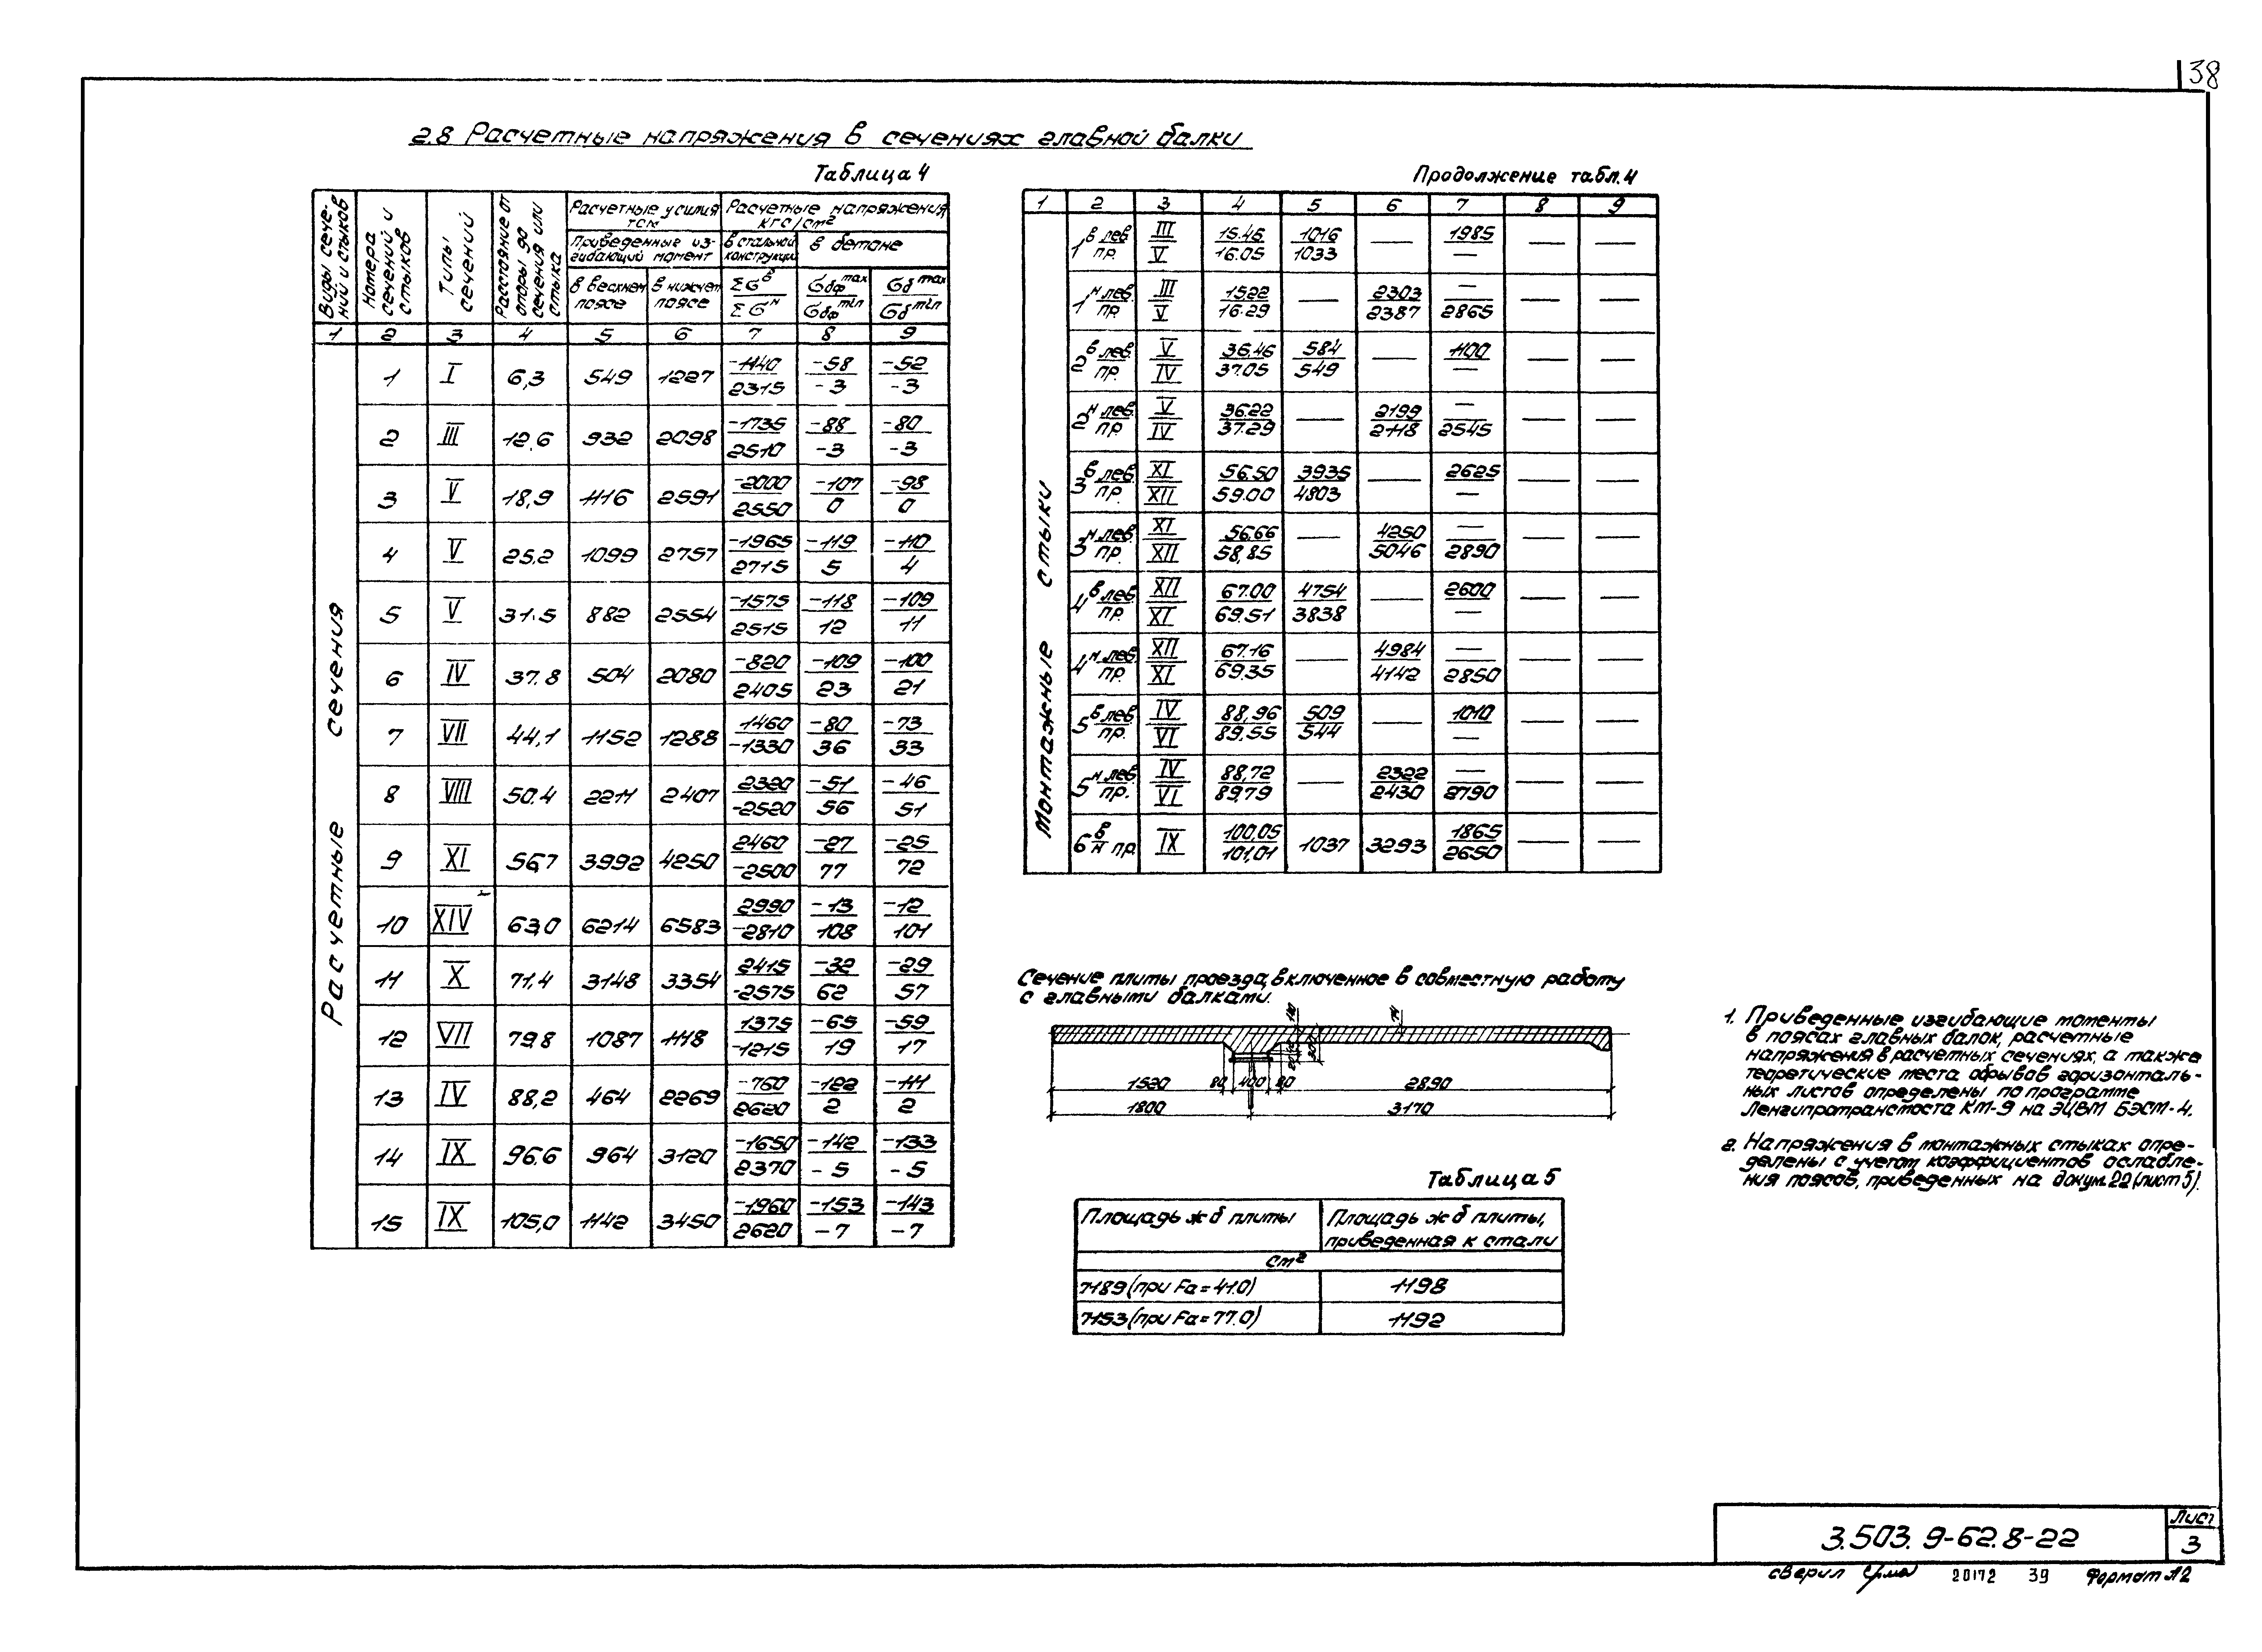 38
2.8 Расчетные напряжения в сечениях главной балки
Таблица 4
Виды сече-
ний и стыков
Номера
сечений и
стыков
Типы
сечений
Расстояние от
опоры до
сечения или
стыка
Расчетные усилия
тсм
Расчетные напряжения
кгс/см²
Приведенные из-
гибающий момент
в стальной
конструкции
в бетоне
в верхнем
поясе
в нижнем
поясе
Σσв
Σσн
σбф max
σбф min
σб max
σб min
1 2 3 4 5 6 7 8 9
Расчетные сечения
1 I 6,3 549 1227 -1140/2315 -58/-3 -52/-3
2 III 12.6 932 2098 -1735/2510 -88/-3 -80/-3
3 V 18,9 1116 2591 -2000/2550 -107/0 -98/0
4 V 25,2 1099 2757 -1965/2715 -119/5 -110/4
5 V 31.5 882 2554 -1575/2515 -118/12 -109/11
6 IV 37.8 504 2080 -820/2405 -109/23 -100/21
7 VII 44,1 1152 1288 1460/-1330 -80/36 -73/33
8 VIII 50.4 2211 2407 2320/-2520 -51/56 -46/51
9 XI 56,7 3992 4250 2460/-2500 -27/77 -25/72
10 XIV 63,0 6214 6583 2990/-2810 -13/108 -12/101
11 X 71,4 3148 3354 2415/-2575 -32/62 -29/57
12 VII 79,8 1087 1118 1375/-1215 -65/19 -59/17
13 IV 88,2 464 2269 -760/2620 -122/2 -111/2
14 IX 96,6 964 3120 -1650/2370 -142/-5 -133/-5
15 IX 105,0 1142 3450 -1960/2620 -153/-7 -143/-7
Продолжение табл. 4
1 2 3 4 5 6 7 8 9
Монтажные стыки
1 в лев./пр. III/V 15.45/16.05 1016/1033 — 1985/— — —
1 н лев./пр. III/V 15.22/16.29 — 2303/2387 —/2865 — —
2 в лев./пр. V/IV 36.46/37.05 584/549 — 1100/— — —
2 н лев./пр. V/IV 36.22/37.29 — 2199/2118 —/2545 — —
3 в лев./пр. XI/XII 56.50/59.00 3935/4803 — 2625/— — —
3 н лев./пр. XI/XII 56.66/58,85 — 4250/5046 —/2890 — —
4 в лев./пр. XII/XI 67.00/69.51 4754/3838 — 2600/— — —
4 н лев./пр. XII/XI 67.16/69.35 — 4984/4142 —/2850 — —
5 в лев./пр. IV/VI 88,96/89.55 509/544 — 1010/— — —
5 н лев./пр. IV/VI 88,72/89,79 — 2322/2430 —/2790 — —
6 в/н пр. IX 100,05/101,01 1037 3293 1865/2650 — —
Сечение плиты проезда, включенное в совместную работу
с главными балками.
1520 80 400 80 2890
1800 3170
Таблица 5
Площадь ж б плиты
Площадь ж б плиты,
приведенная к стали
см²
7189 (при Fa = 41.0) 1198
7153 (при Fa = 77.0) 1192
1. Приведенные изгибающие моменты
в поясах главных балок, расчетные
напряжения в расчетных сечениях, а также
теоретические места обрывов горизонталь-
ных листов определены по программе
Ленгипротрансмоста КМ-9 на ЭЦВМ БЭСМ-4.
2. Напряжения в монтажных стыках опре-
делены с учетом коэффициентов ослабле-
ния поясов, приведенных на докум. 22 (лист 5).
3.503.9-62.8-22
Лист
3
Сверил
20172 39 Формат А2